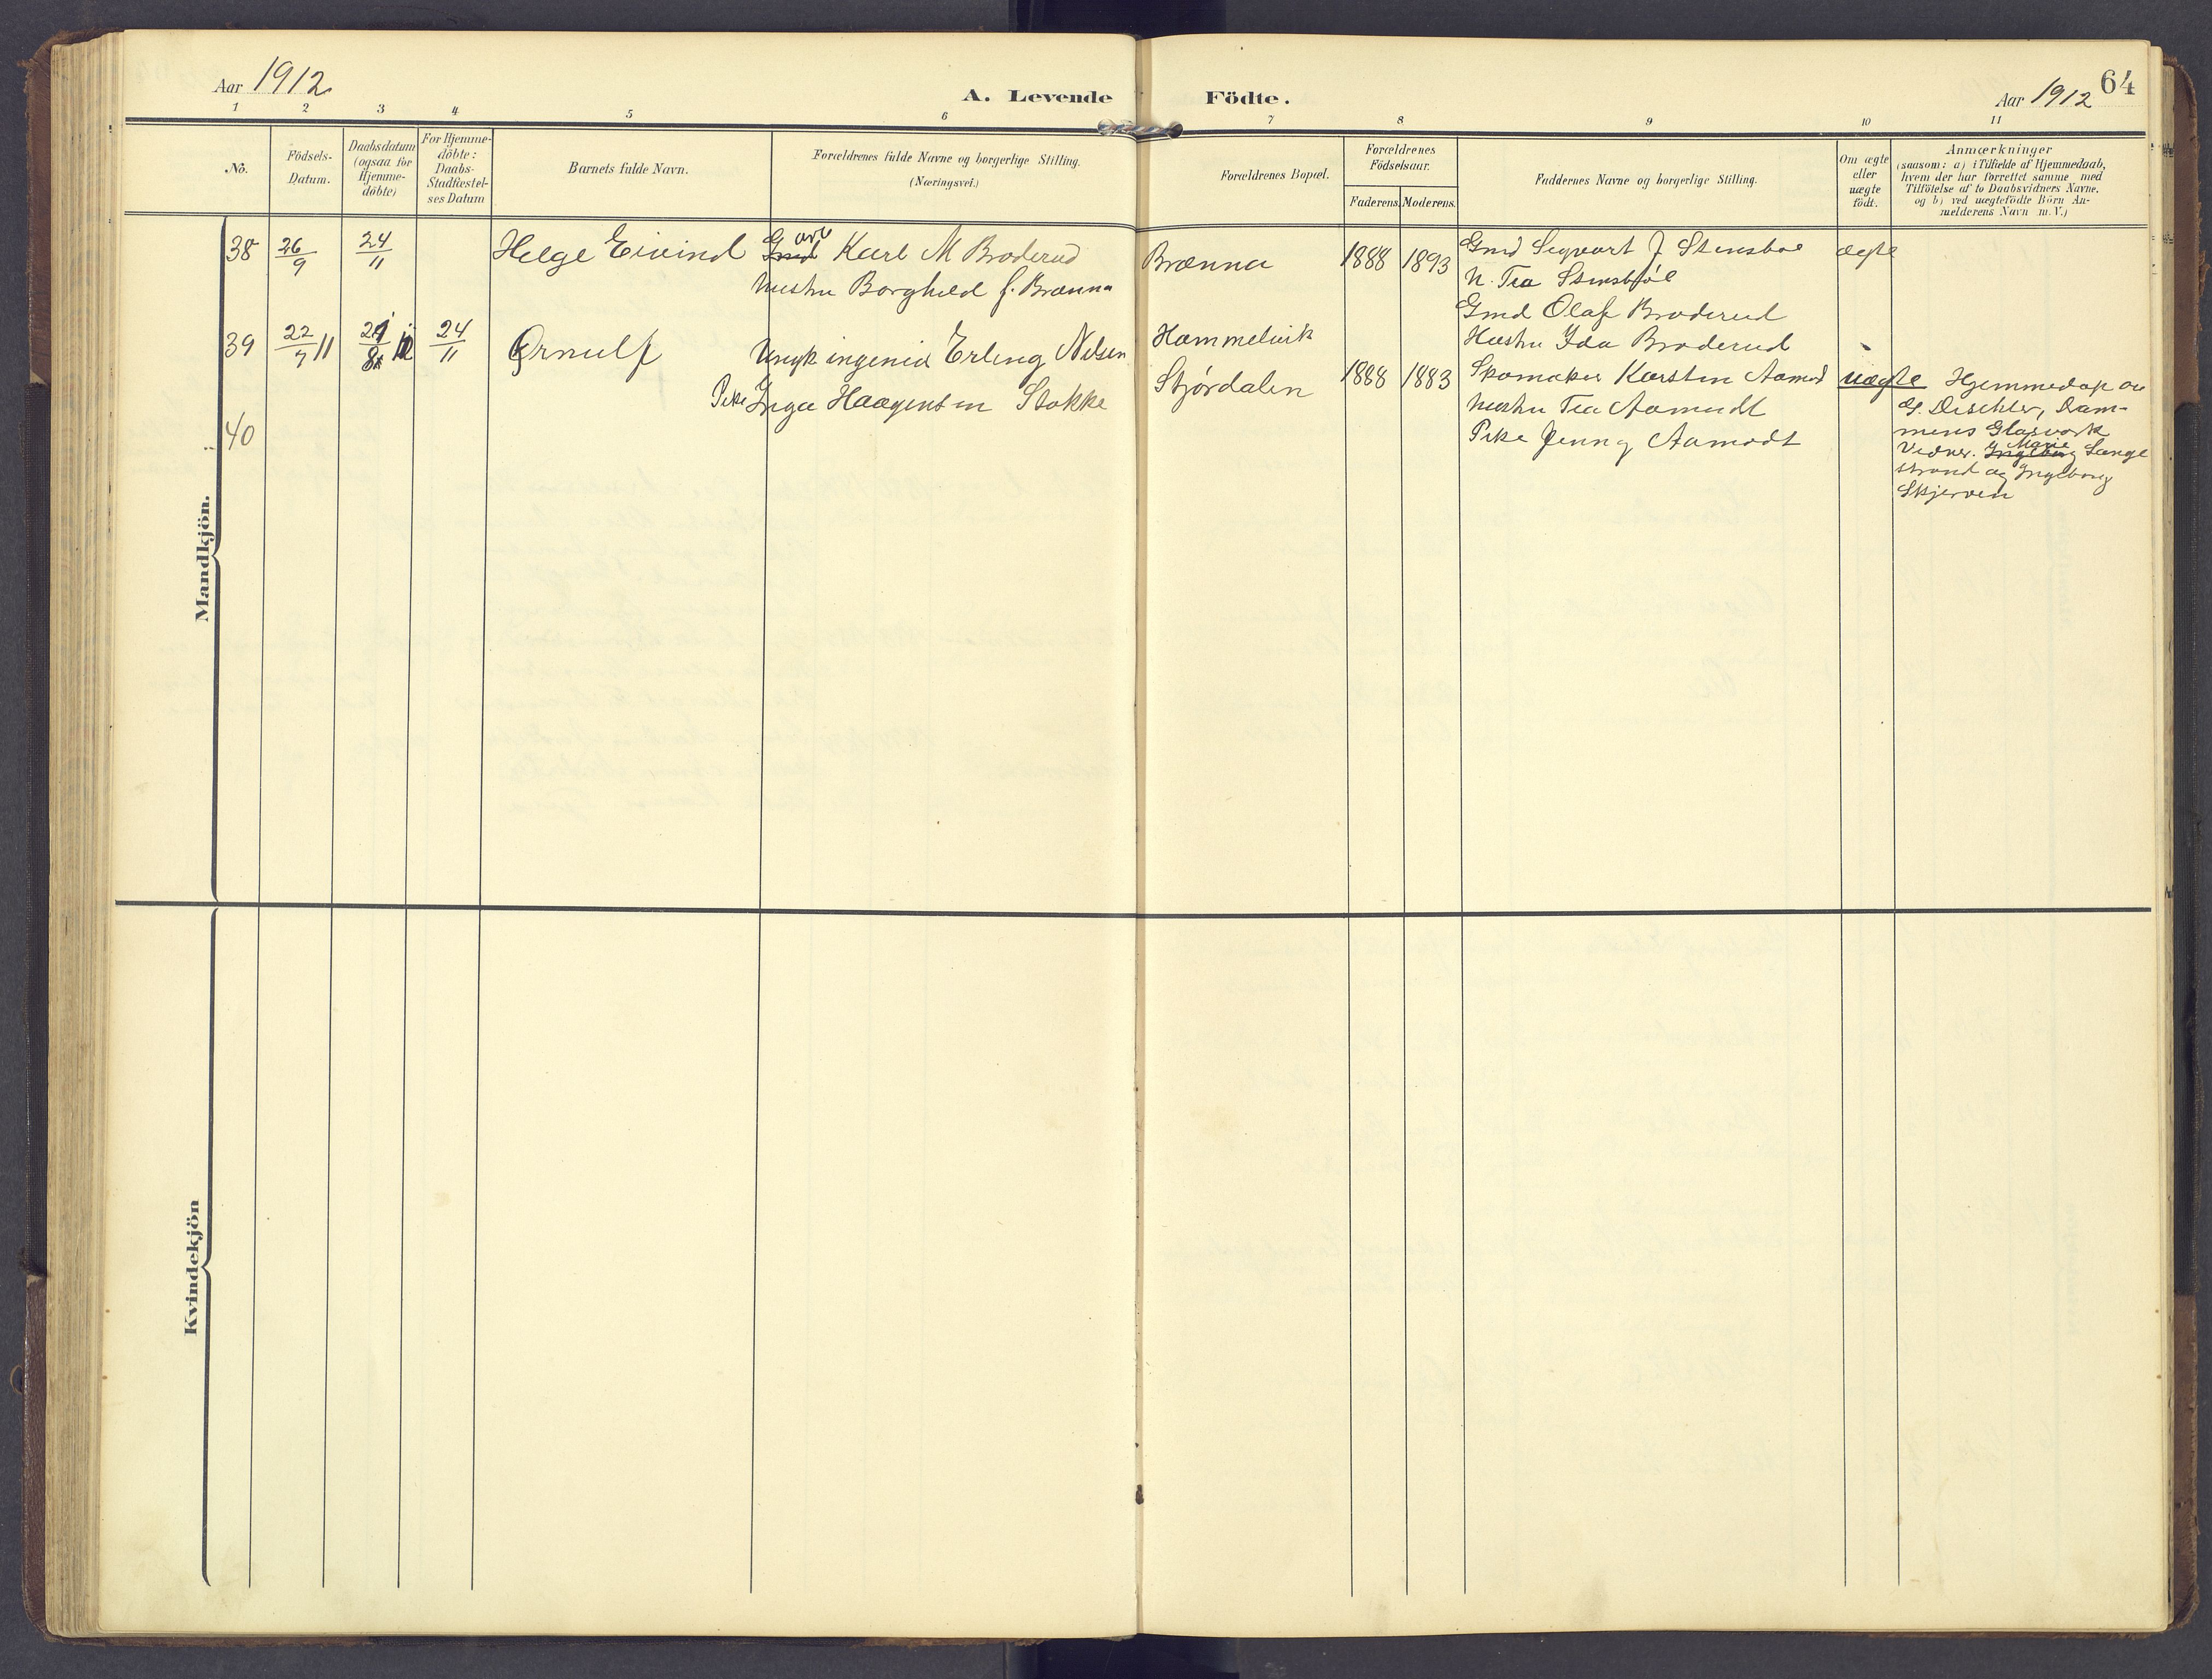 Aar 1912
A. Levende Födte.
Aar 1912
64
1 2 3 4 5 6 7 8 9 10 11
No.
Födsels-
Datum.
Daabsdatum
(ogsaa for
Hjemme-
döbte)
For Hjemme-
döbte:
Daabs-
Stadfæstel-
ses Datum
Barnets fulde Navn.
Forældrenes fulde Navne og borgerlige Stilling.
(Næringsvei.)
Forældrenes Bopæl.
Forældrenes
Födselsaar.
Faderens. Moderens.
Faddernes Navne og borgerlige Stilling.
Om ægte
eller
uægte
födt.
Anmærkninger
(saasom: a) i Tilfælde af Hjemmedaab,
hvem der har forrettet samme med
Tilföielse af to Daabsvidners Navne,
og b) ved uægtefödte Börn An-
melderens Navn m. V.)
Mandkjön.
38 26/9 24/11 Helge Eivind Gmd arb Karl M Broderud
Hustru Borghild f. Brænna
Brænna 1888 1893
Gmd Sigvart J Stensbøl
H. Tea Stensbøl
Gmd Olaf Broderud
Hustru Ida Broderud
ægte
39 22/7 11 24/11 Ørnulf
Ungk ingeniø Erling Nilsen
Pike Inga Haagensen Stokke
Hommelvik
Stjørdalen 1888 1883
Skomaker Karsten Aamod
Hustru Tea Aamodt
Pike Jenny Aamodt
uægte
Hjemmedøp av
G. Dischler, Dram-
mens Glasverk
Vidner. Ingeborg Marie Lange
strand og Ingeborg
Skjerven
40
Kvindekjön